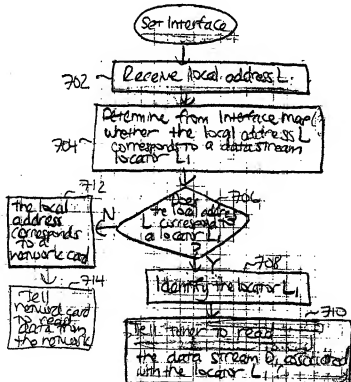 Set Interface
702
Receive local address L.
704
Determine from Interface map
whether the local address L
corresponds to a data stream
locator L1
706
Does
the local address
L correspond to
a locator L1
?
N
Y
712
the local
address
corresponds
to a
network card
714
Tell
network card
to read
data from
the network
708
Identify the locator L1
710
Tell tuner to read
the data stream D, associated
with the locator L1